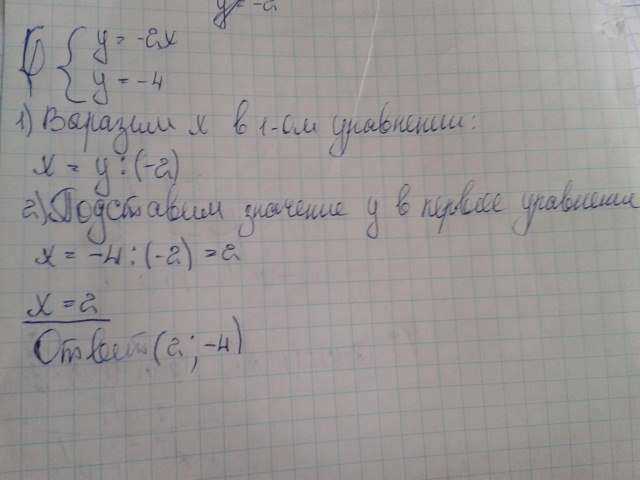 y = -2
y = -2x
y = -4
1) Выразим x в 1-ом уравнении:
x = y : (-2)
2) Подставим значение y в первое уравнение
x = -4 : (-2) = 2
x = 2
Ответ (2; -4)